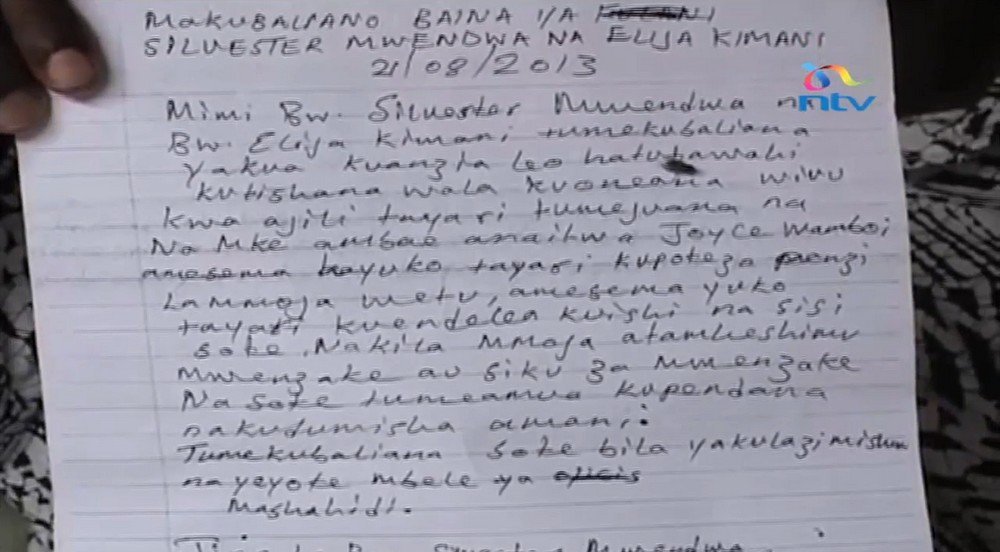 MAKUBALIANO BAINA YA
SILVESTER MWENDWA NA ELIJA KIMANI
21/08/2013
ntv
Mimi Bw. Silvester Mwendwa na
Bw. Elija Kimani tumekubaliana
yakua kuanzia leo hatutawahi
kutishana wala kuoneana wivu
kwa ajili tayari tumejuana na
Na Mke ambae anaitwa Joyce Wamboi
amesema hayuko tayari kupoteza penzi
Lammoja wetu, amesema yuko
tayari kuendelea kuishi na sisi
sote. Nakila Mmoja atamheshimu
Mwenzake au siku za Mwenzake
Na sote tumeamua kupendana
nakudumisha amani.
Tumekubaliana sote bila yakulazimishwa
na yeyote mbele ya
Mashahidi.